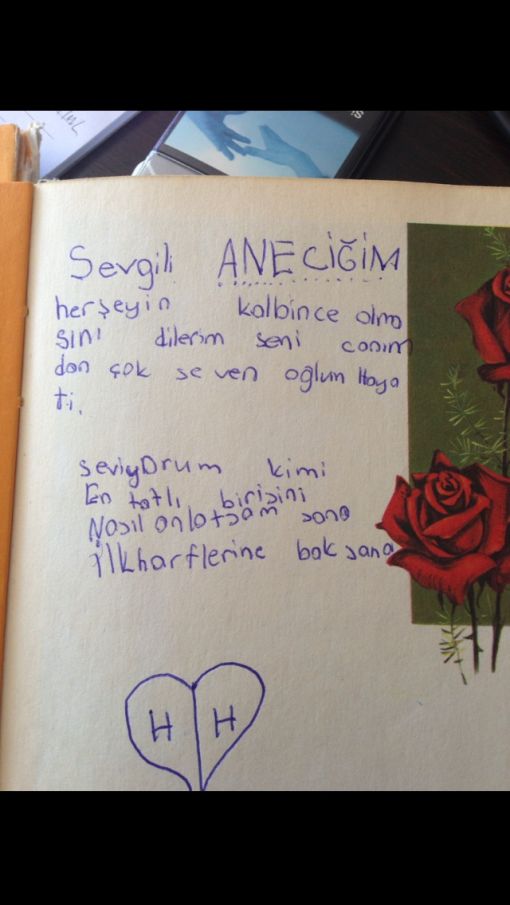 Sevgili ANECİĞİM
herşeyin kalbince olma
sını dilerim seni canım
dan çok se ven oğlun Haya
ti.
seviyorum kimi
En tatlı birisini
Nasıl anlatsam sana
İlkharflerine baksana
H H